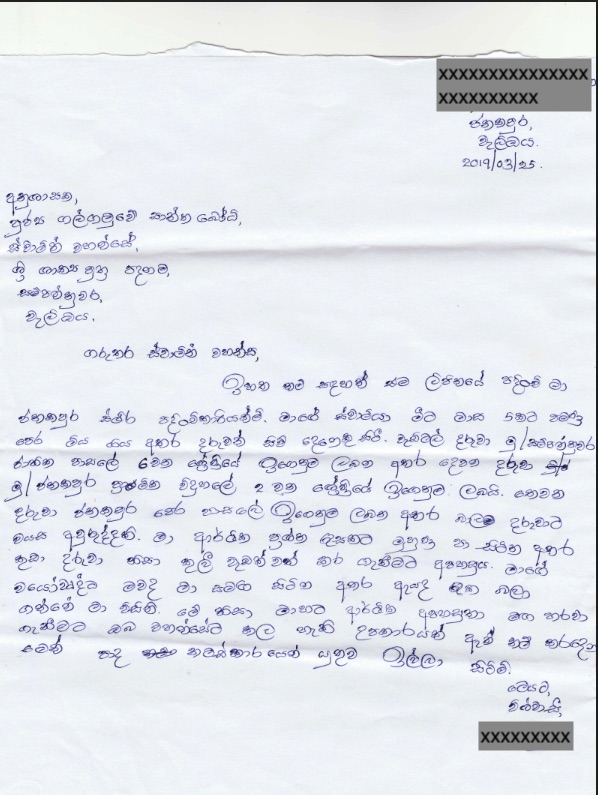 XXXXXXXXXXXXXXX
XXXXXXXXXX
ජනකපුර,
වැලිඔය.
2019/03/25.
අනුශාසක,
පූජ්‍ය ගල්ගමුවේ සාන්ත බෝධි,
ස්වාමින් වහන්සේ,
ශ්‍රී ශාක්‍ය පුත්‍ර පදනම,
සම්පත්නුවර,
වැලිඔය.
ගරුතර ස්වාමින් වහන්ස,
ඉහත නම සඳහන් එම ලිපිනයේ පදිංචි මා
ජනකපුර ස්ථිර පදිංචිකාරියක්මි. මාගේ ස්වාමියා මීට මාස 5කට පමණ
පෙර මිය ගිය අතර දරුවන් සිව් දෙනෙකු සිටී. වැඩිමල් දරුවා මු/සම්පත්නුවර
විද්‍යාලයේ 6වන ශ්‍රේණියේ ඉගෙනුම ලබන අතර දෙවන දරුවා
මු/ජනකපුර ප්‍රාථමික විදුහලේ 2 වන ශ්‍රේණියේ ඉගෙනුම ලබයි. තෙවන
දරුවා ජනකපුර පෙර පාසලේ ඉගෙනුම ලබන අතර බාලම දරුවාට
වයස අවුරුද්දකි. මා ආර්ථික ප්‍රශ්න රැසකට මුහුණ පා සිටින අතර
කුඩා දරුවා නිසා කුලී වැඩක්වත් කර ගැනීමට අපහසුය. මාගේ
වයෝවෘද්ධ මවද මා සමඟ සිටින අතර ඇයද බලා
ගන්නේ මා විසිනි. මේ නිසා මාහට ආර්ථික අපහසුතා මඟ හරවා
ගැනීමට ඔබ වහන්සේට කල හැකි උපකාරයක් ඇත් නම් කරදෙන
මෙන් පාද නමස්කාරයෙන් යුතුව ඉල්ලා සිටිමි.
මෙයට,
විශ්වාසී,
XXXXXXXXX